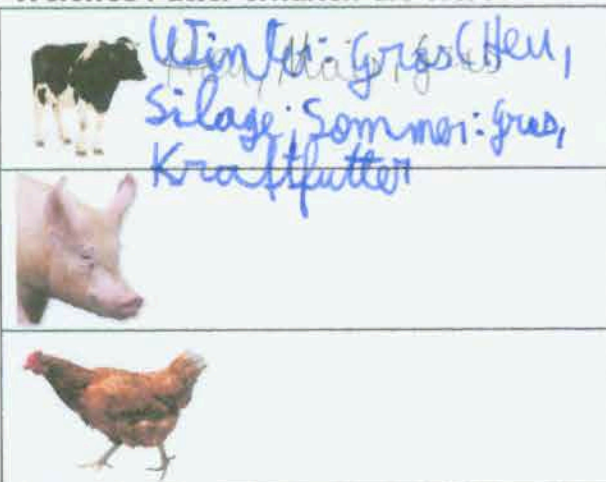 Winter: Gras (Heu,
Silage; Sommer: Gras,
Kraftfutter